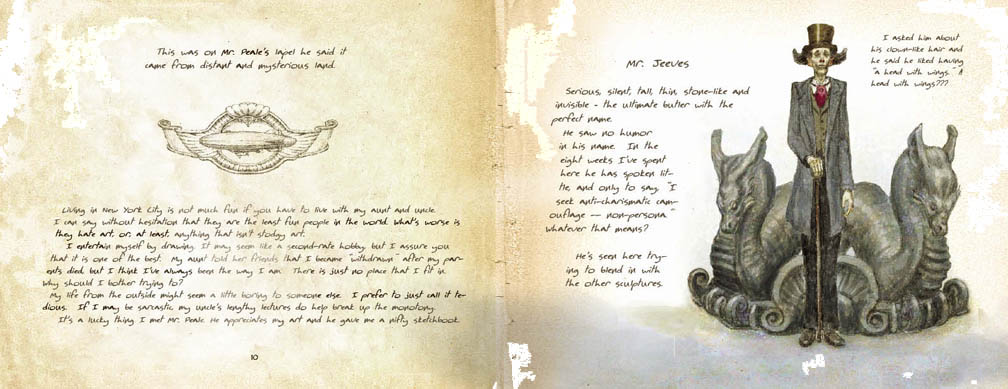 This was on Mr. Peale's lapel he said it
came from distant and mysterious land.
Living in New York City is not much fun if you have to live with my aunt and uncle.
I can say without hesitation that they are the least fun people in the world. What's worse is
they hate art, or, at least, anything that isn't stodgy art.
I entertain myself by drawing. It may seem like a second-rate hobby, but I assure you
that it is one of the best. My aunt told her friends that I became "withdrawn" after my par-
ents died, but I think I've always been the way I am. There is just no place that I fit in.
Why should I bother trying to?
My life from the outside might seem a little boring to someone else. I prefer to just call it te-
dious. If I may be sarcastic, my uncle's lengthy lectures do help break up the monotony.
It's a lucky thing I met Mr. Peale. He appreciates my art and he gave me a nifty sketchbook.
10
Mr. Jeeves
Serious, silent, tall, thin, stone-like and
invisible - the ultimate butler with the
perfect name.
He saw no humor
in his name. In the
eight weeks I've spent
here he has spoken lit-
tle, and only to say, "I
seek anti-charismatic cam-
ouflage -- non-persona"
whatever that means?
He's seen here try-
ing to blend in with
the other sculptures.
I asked him about
his clown-like hair and
he said he liked having
"a head with wings." A
head with wings???